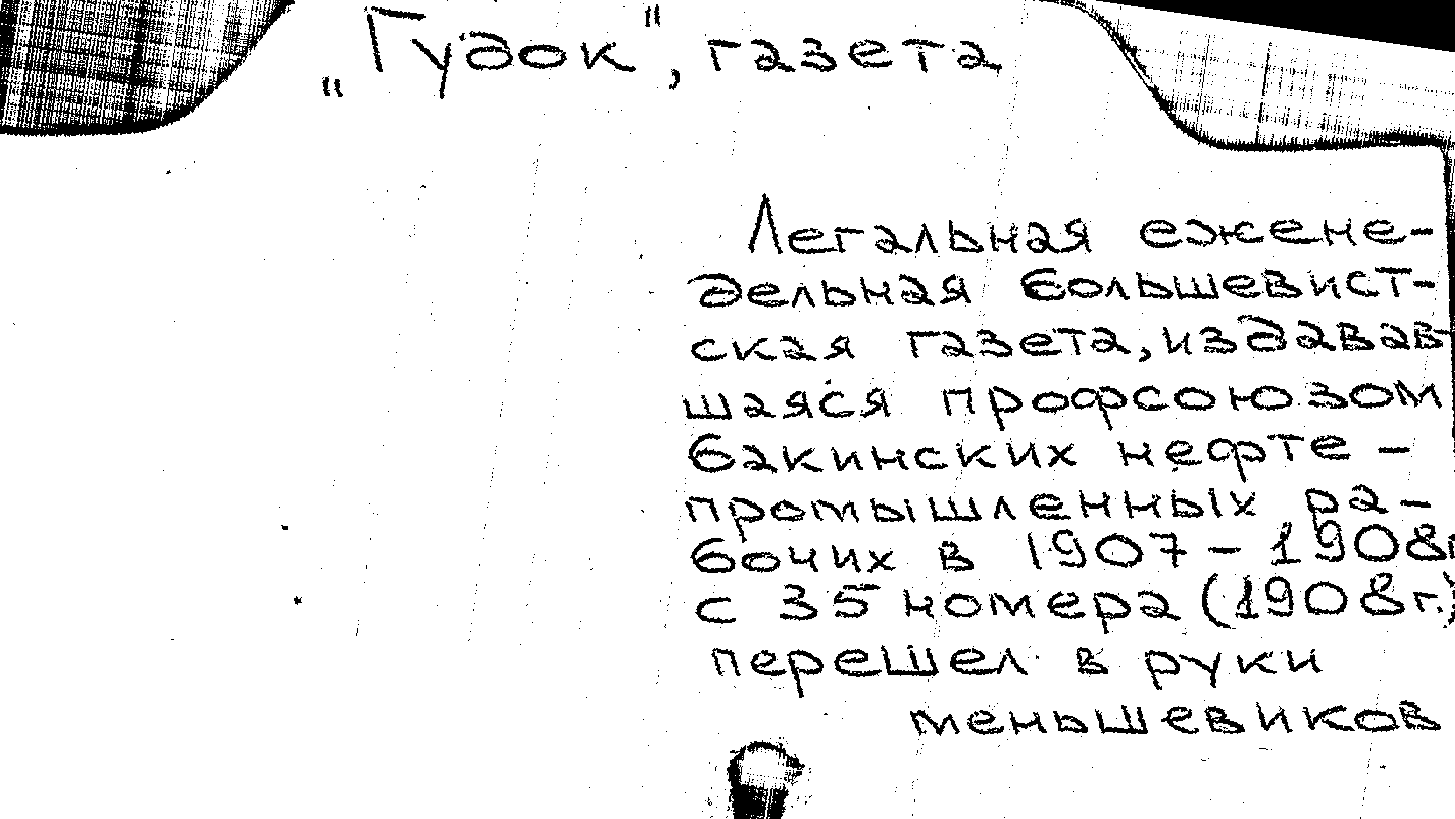 „Гудок", газета
Легальная ежене-
дельная большевист-
ская газета, издавав
шаяся профсоюзом
бакинских нефте -
промышленных ра-
бочих в 1907 - 1908г
с 35 номера (1908г.)
перешел в руки
меньшевиков